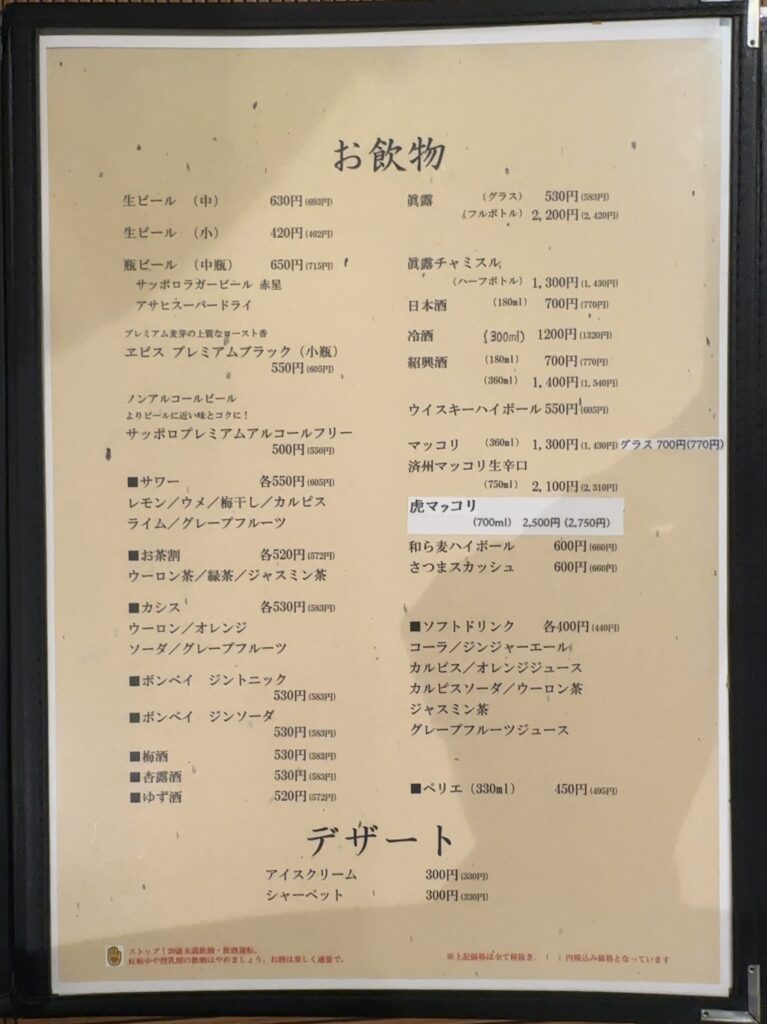 お飲物
生ビール （中） 630円(693円)
生ビール （小） 420円(462円)
瓶ビール （中瓶） 650円(715円)
サッポロラガービール 赤星
アサヒスーパードライ
プレミアム麦芽の上質なロースト香
ヱビス プレミアムブラック（小瓶）
550円(605円)
ノンアルコールビール
よりビールに近い味とコクに！
サッポロプレミアムアルコールフリー
500円(550円)
■サワー 各550円(605円)
レモン／ウメ／梅干し／カルピス
ライム／グレープフルーツ
■お茶割 各520円(572円)
ウーロン茶／緑茶／ジャスミン茶
■カシス 各530円(583円)
ウーロン／オレンジ
ソーダ／グレープフルーツ
■ボンベイ ジントニック
530円(583円)
■ボンベイ ジンソーダ
530円(583円)
■梅酒 530円(583円)
■杏露酒 530円(583円)
■ゆず酒 520円(572円)
眞露 (グラス) 530円(583円)
(フルボトル) 2,200円(2,420円)
眞露チャミスル
(ハーフボトル) 1,300円(1,430円)
日本酒 (180ml) 700円(770円)
冷酒 (300ml) 1200円(1320円)
紹興酒 (180ml) 700円(770円)
(360ml) 1,400円(1,540円)
ウイスキーハイボール 550円(605円)
マッコリ (360ml) 1,300円(1,430円) グラス 700円(770円)
済州マッコリ生辛口
(750ml) 2,100円(2,310円)
虎マッコリ
(700ml) 2,500円 (2,750円)
和ら麦ハイボール 600円(660円)
さつまスカッシュ 600円(660円)
■ソフトドリンク 各400円(440円)
コーラ／ジンジャーエール
カルピス／オレンジジュース
カルピスソーダ／ウーロン茶
ジャスミン茶
グレープフルーツジュース
■ペリエ（330ml） 450円(495円)
デザート
アイスクリーム 300円(330円)
シャーベット 300円(330円)
ストップ！20歳未満飲酒・飲酒運転。
妊娠中や授乳期の飲酒はやめましょう。お酒は楽しく適量で。
※上記価格は全て税抜き、（ ）内税込み価格となっています